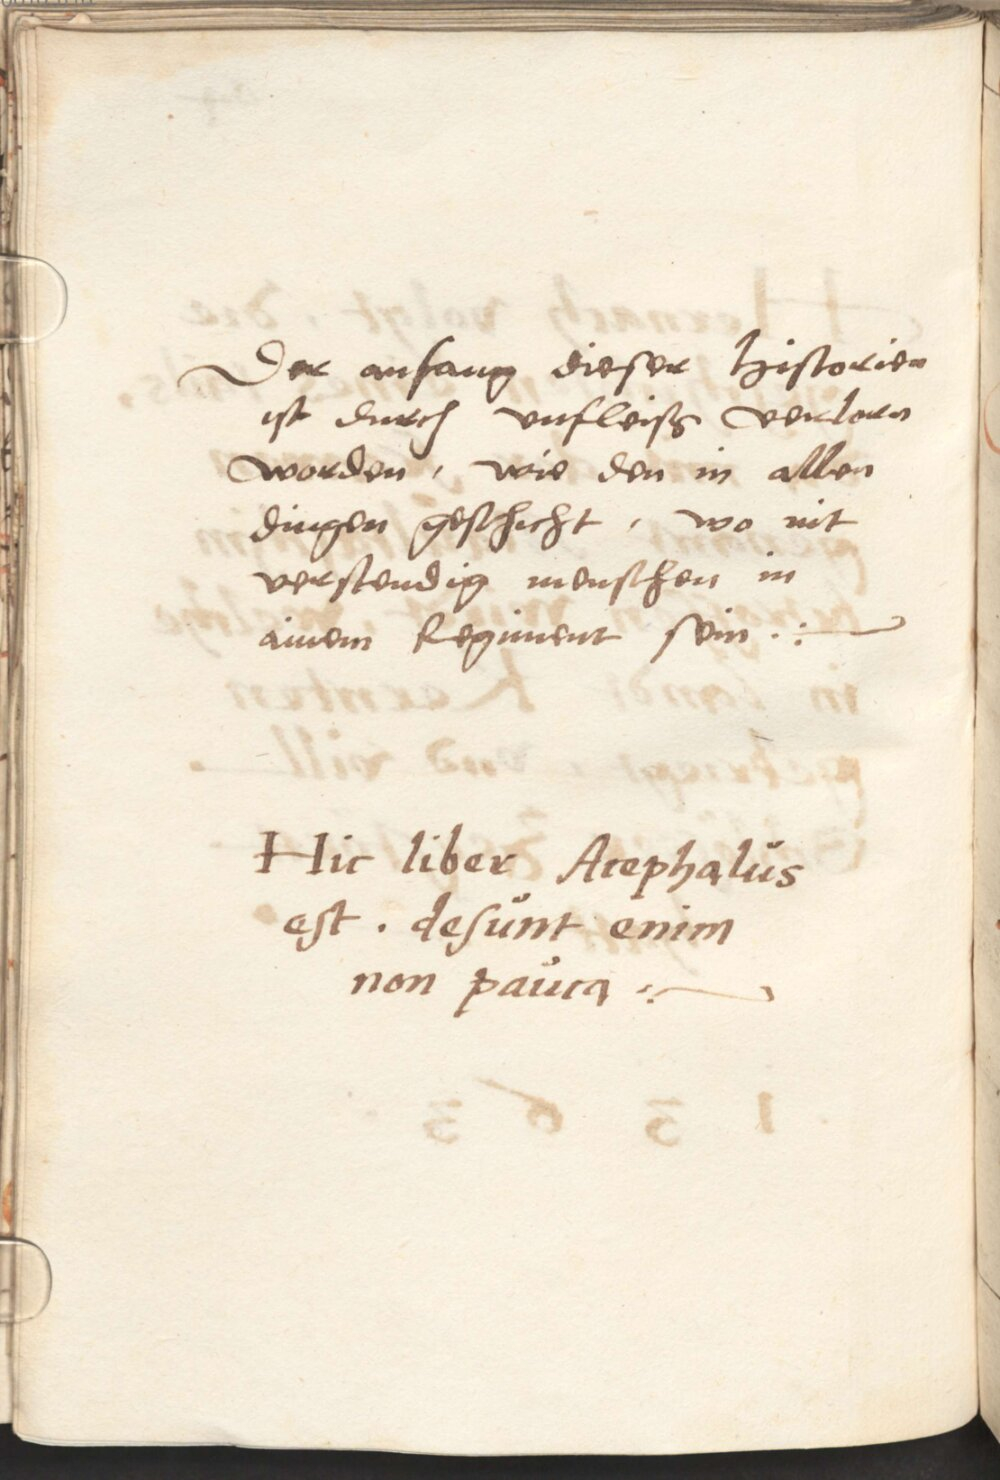 Der anfang dieser Historien
ist durch vnfleiß verlorn
worden, wie den in allen
dingen geschicht, wo nit
verstendig menschen in
ainem Regiment sein .:
Hic liber Acephalus
est . desunt enim
non pauca .: